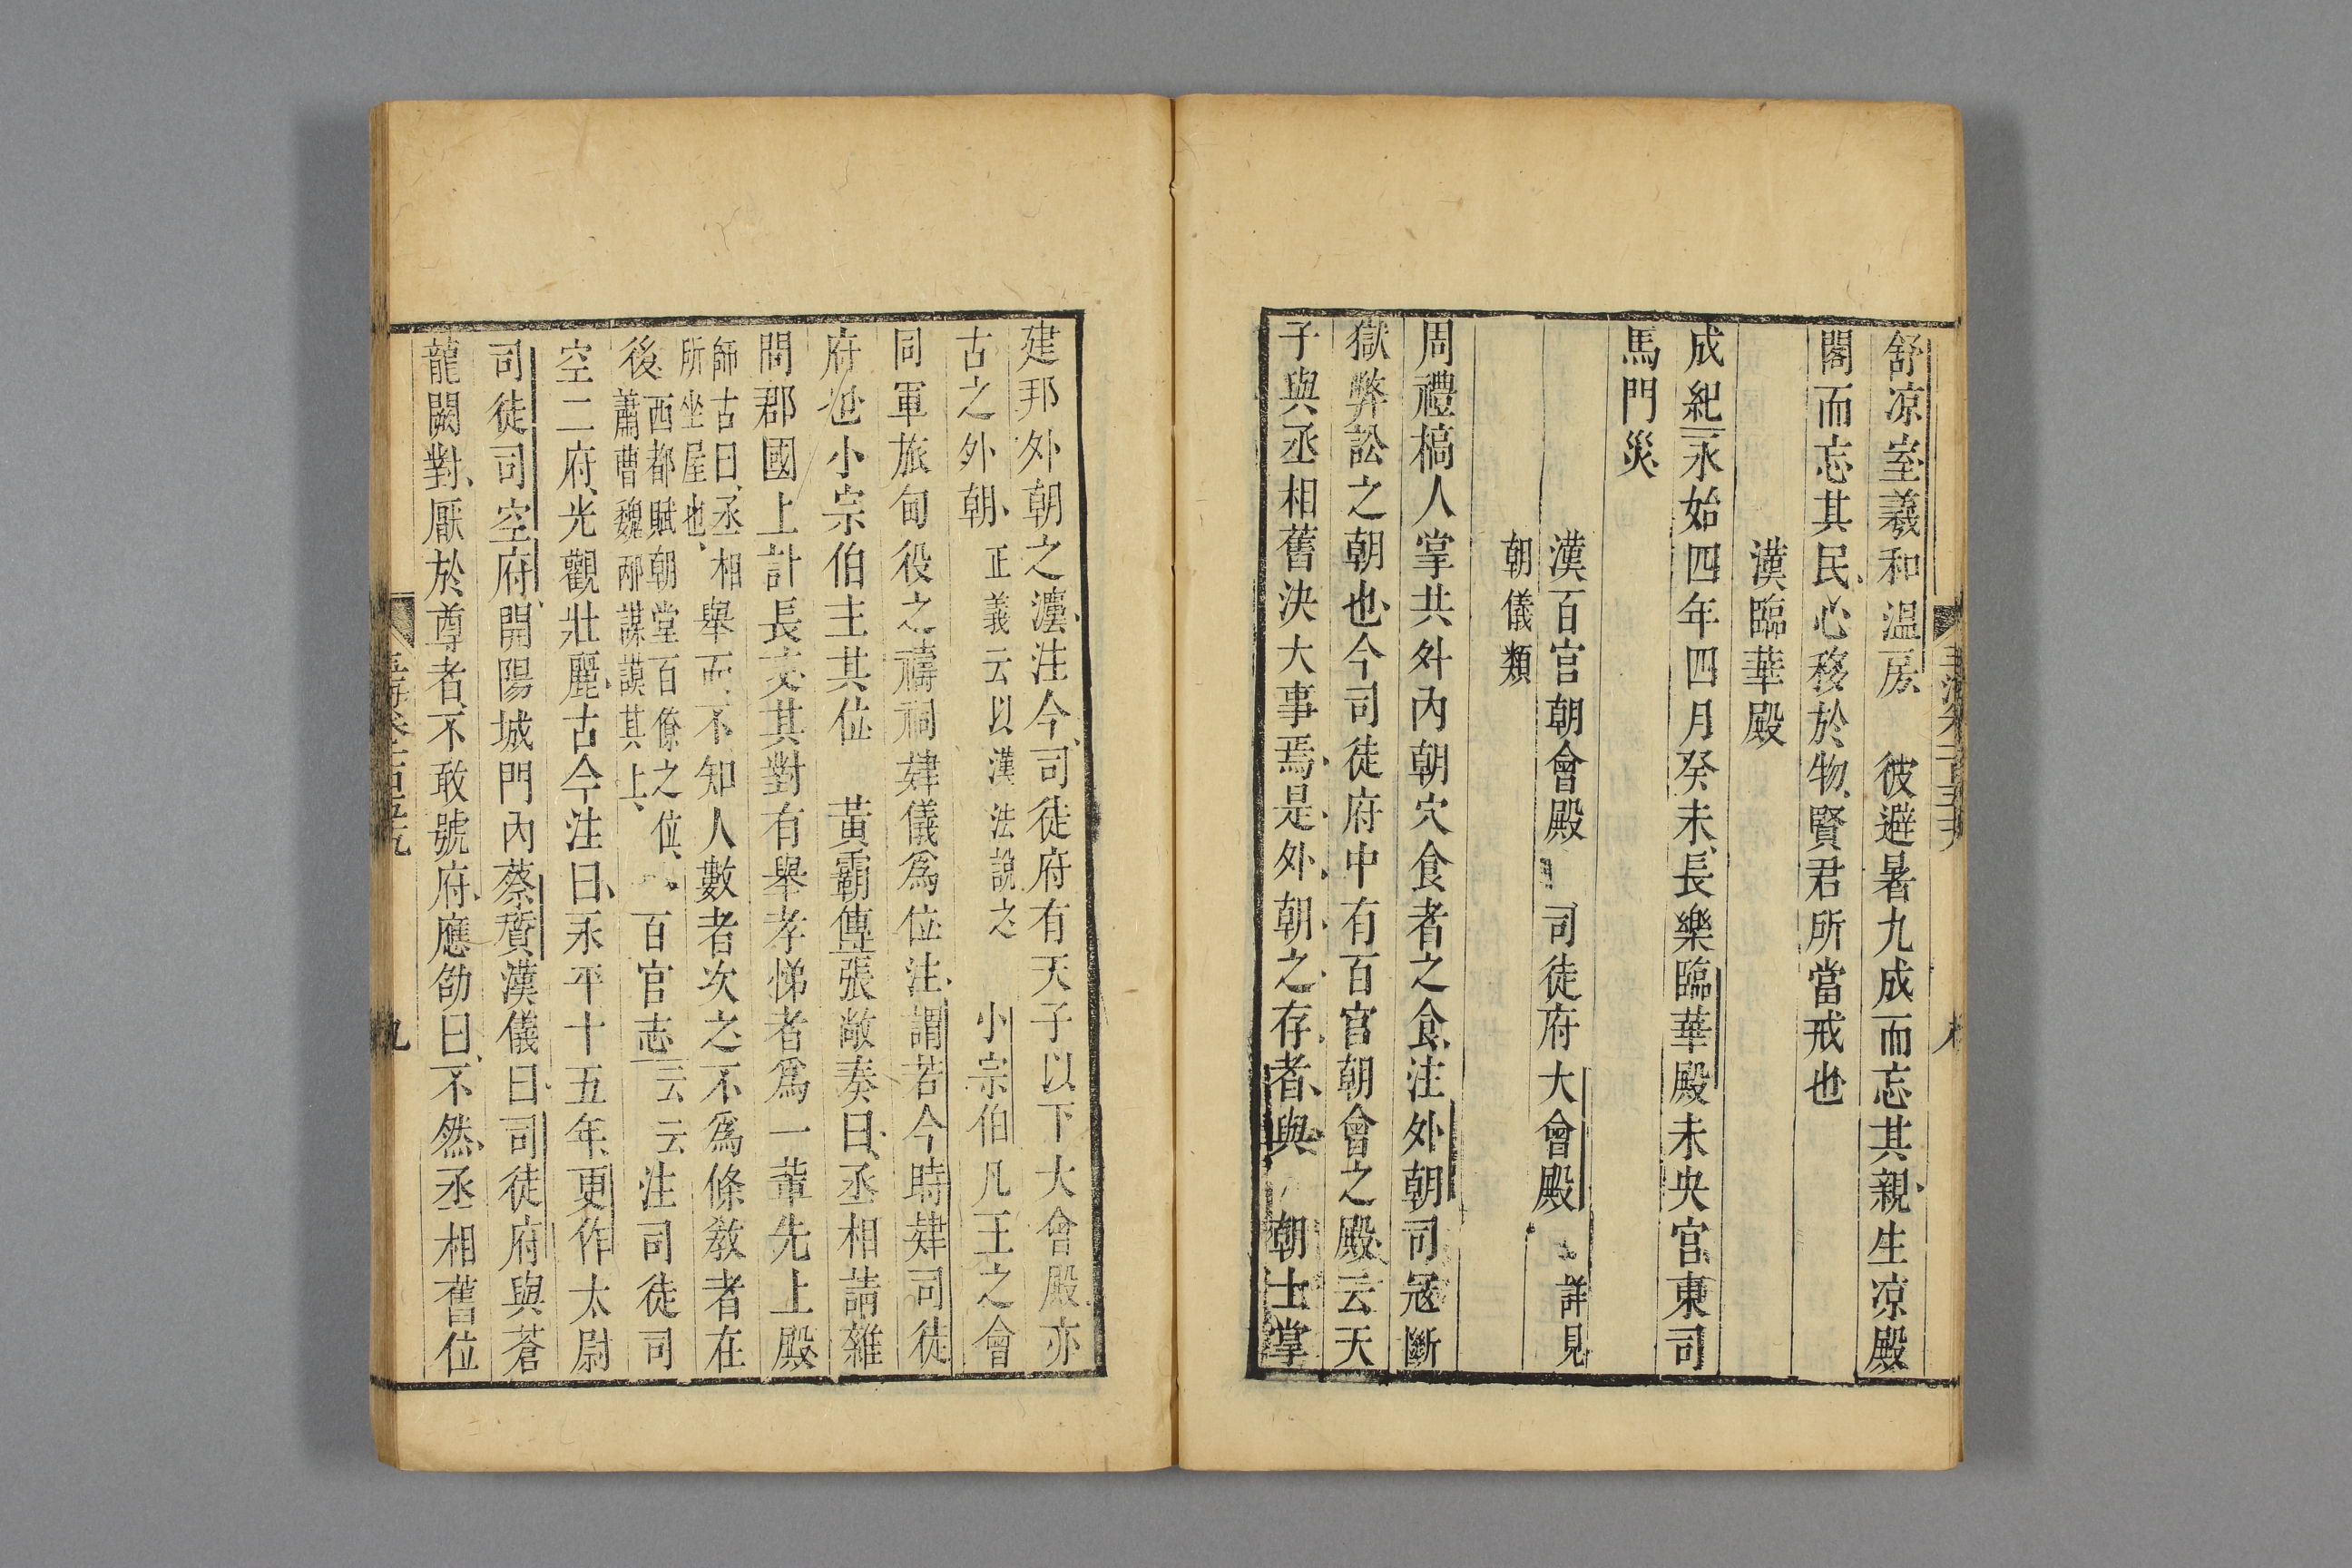 舒凉室羲和温房 彼避暑九成而忘其親生凉殿
閣而忘其民心移於物賢君所當戒也
漢臨華殿
成紀永始四年四月癸未長樂臨華殿未央宮東司
馬門災
漢百官朝會殿 司徒府大會殿 詳見
朝儀類
周禮槁人掌共外內朝穴食者之食注外朝司寇斷
獄弊訟之朝也今司徒府中有百官朝會之殿云天
子與丞相舊決大事焉是外朝之存者與 朝士掌
建邦外朝之灋注今司徒府有天子以下大會殿亦
古之外朝 正義云以漢法說之 小宗伯凡王之會
同軍旅甸役之禱祠肄儀爲位注謂若今時肄司徒
府也小宗伯主其位 黃霸傳張敞奏曰丞相請雜
問郡國上計長丞其對有舉孝悌者爲一輩先上殿
師古曰丞相所坐屋也 舉而不知人數者次之不爲條敎者在
後 西都賦朝堂百僚之位蕭曹魏邴謀謨其上 百官志云云注司徒司
空二府光觀壯麗古今注曰永平十五年更作太尉
司徒司空府開陽城門內蔡質漢儀曰司徒府與蒼
龍闕對厭於尊者不敢號府應劭曰不然丞相舊位
九